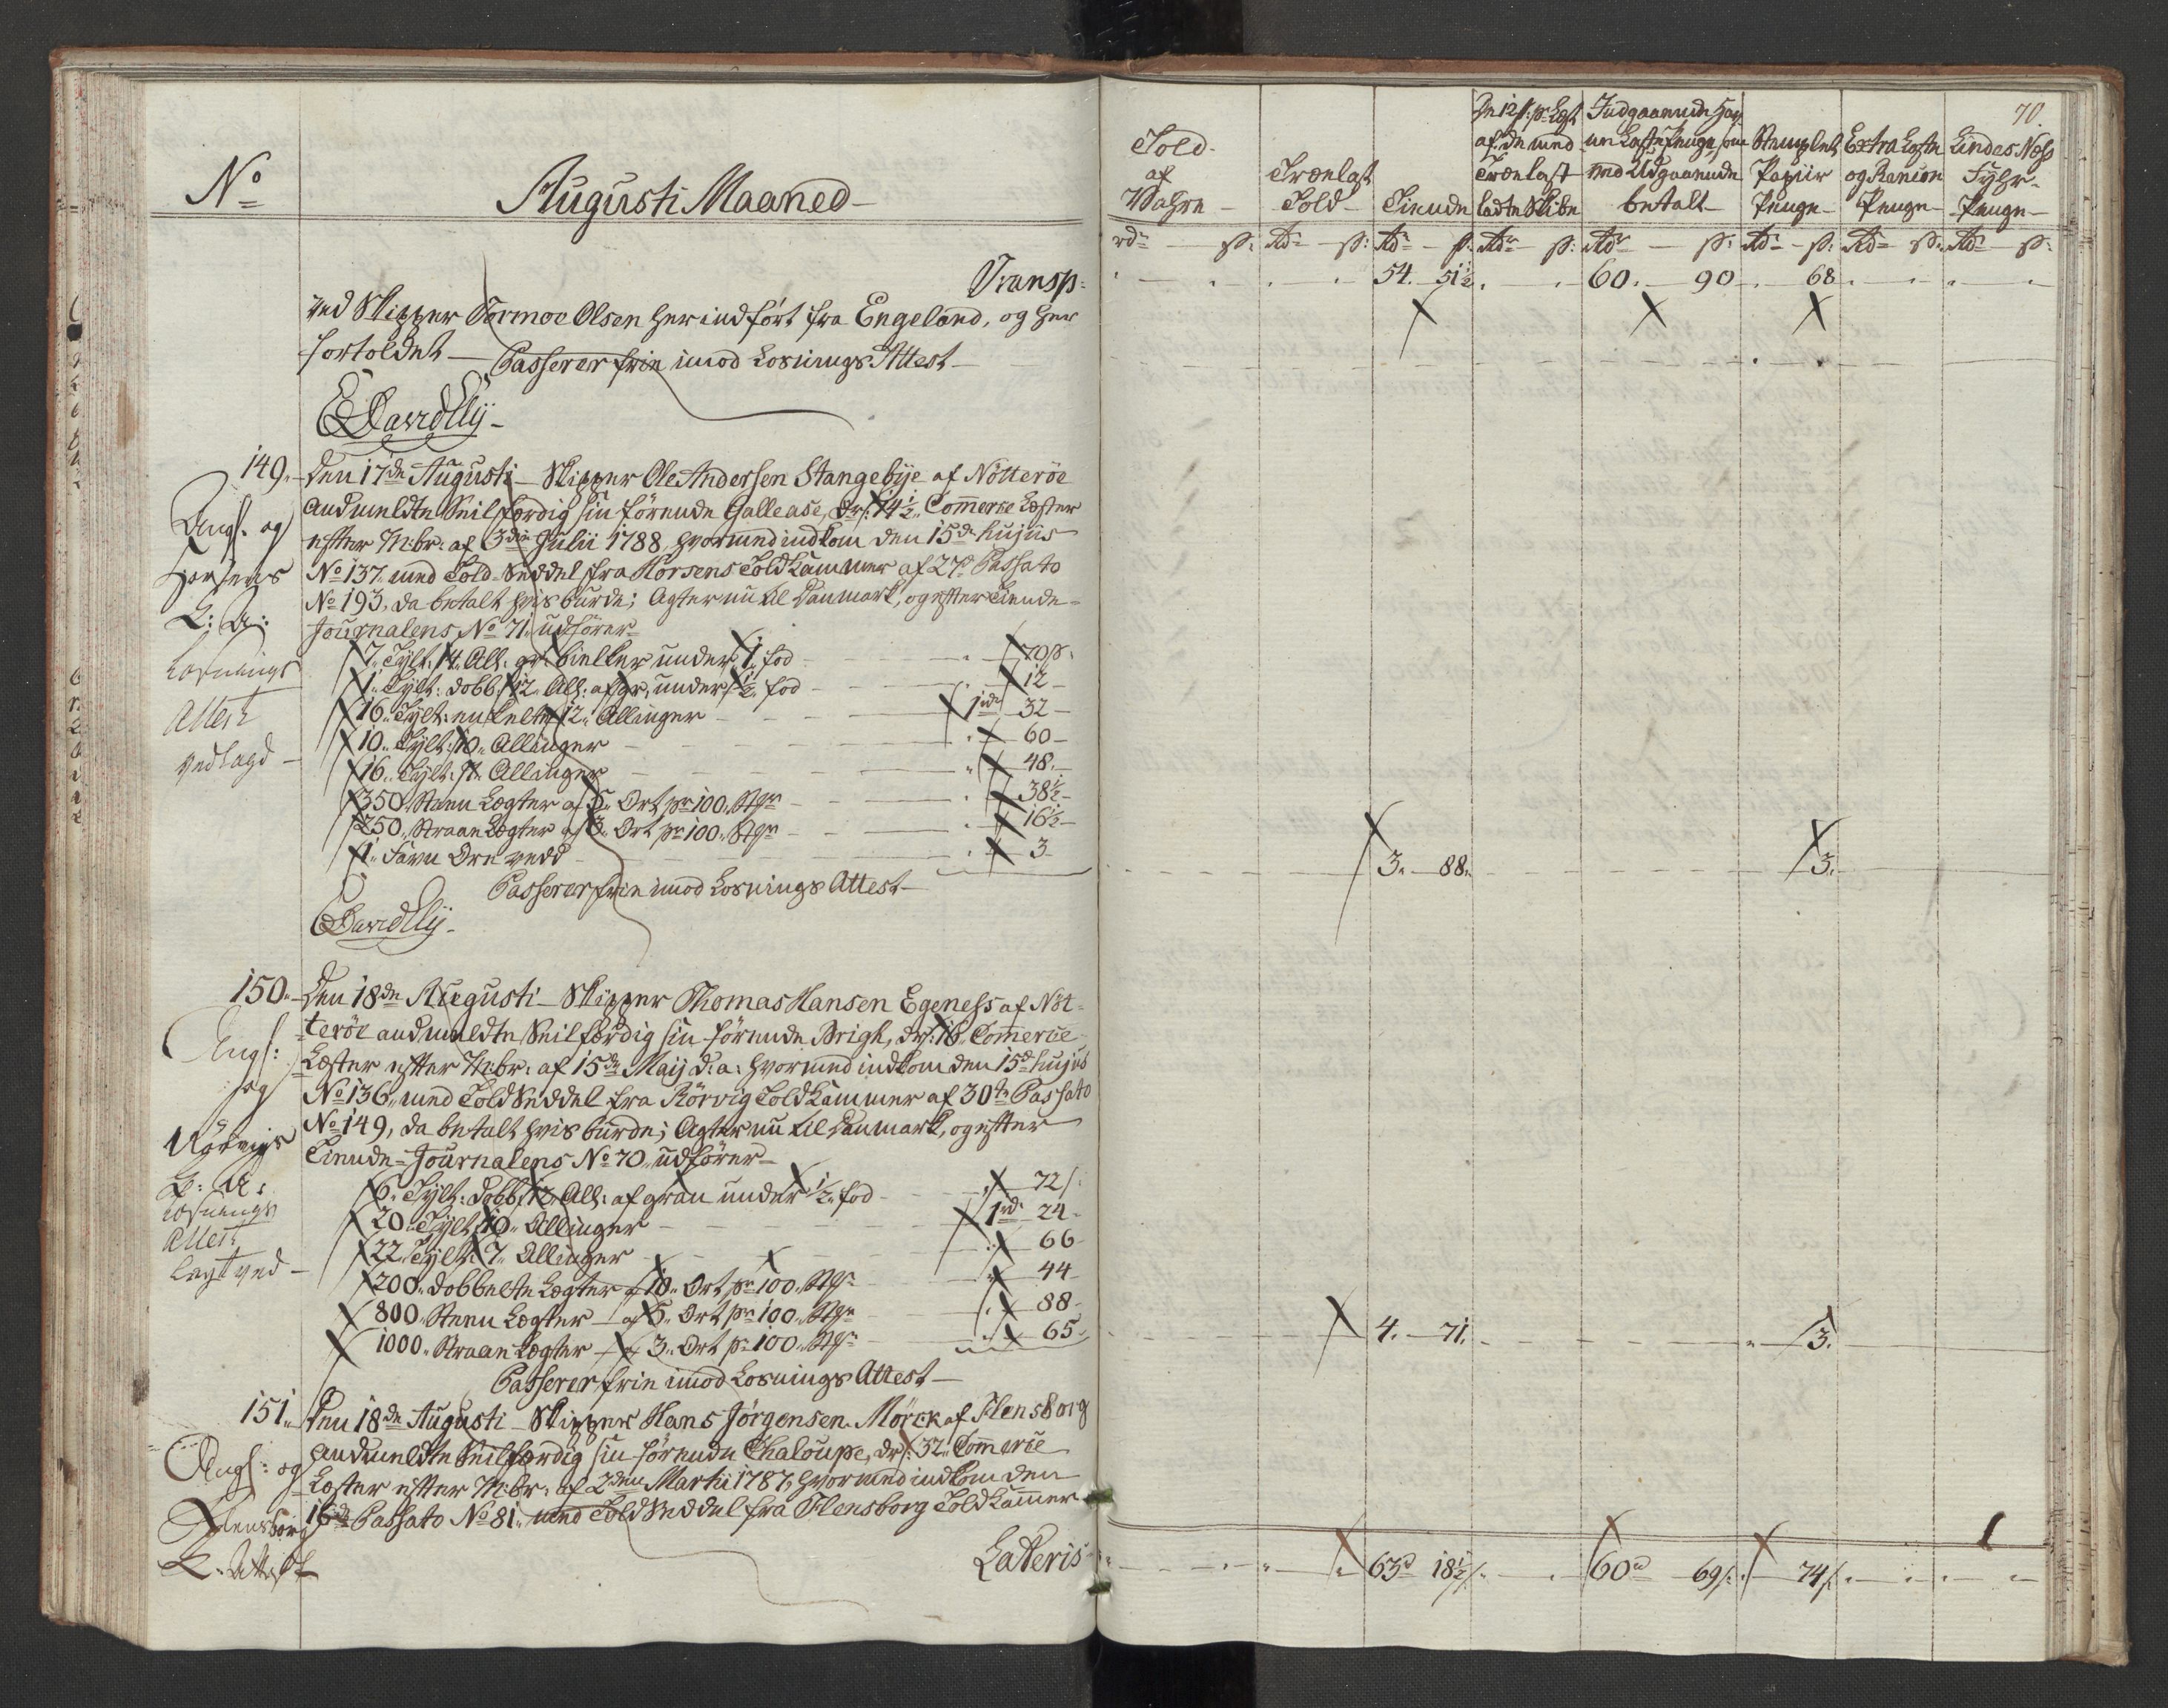 No
Augusti Maaned
Transp:
ved Skipper Tormoe Olsen her indført fra Engeland, og her
fortoldet — Passerer frie imod Losnings Attest —
149. Den 17de Augusti — Skipper Ole Andersen Stangebÿe af Nötteröe
andmeldte Seilfærdig sin førende Gallease, dr: 14½ Commerce Læster
efter M:br: af 3die Julii 1788, hvormed indkom den 15de hujus
No 137 med Told-Seddel fra Horsens Told Kammer af 27de Passato
No 193, da betalt hvis burde; Agter nu til Danmark, og efter Tiende-
Journalens No 71 udfører
7 Tÿlt: 14 All: gr: bielker under 1 fod — 70 s:
1 Tÿlt: dobb: 12 All: af gr: under ½ fod — 12
16 Tÿlt: enkelte 12 Allinger — 1 rd 32
10 Tÿlt: 10 Allinger — 60
16 Tÿlt: 7 Allinger — 48
350 Steen Lægter a 5 Ort pr 100 Stkr — 38½
250 Straae Lægter a 3 Ort pr 100 Stkr — 16½
1 Favn Ore vedd — 3
Passerer frie imod Losnings Attest —
og
Horsens
Losnings
Attest
vedlagd
150. Den 18de Augusti — Skipper Thomas Hansen Egeness af Nöt-
teröe andmeldte Seilfærdig sin førende Brigh, dr: 16 Commerce
Læster efter M:br: af 15de Maij d: a: hvormed indkom den 15de hujus
No 136 med Told Seddel fra Rörvig Told Kammer af 30te Passato
No 149, da betalt hvis burde; Agter nu til Danmark, og efter
Tiende-Journalens No 70 udfører
6 Tÿlt: dobb: 12 All: af gran under ½ fod — 72 s:
20 Tÿlt: 10 Allinger — 1 rd 24
22 Tÿlt: 7 Allinger — 66
200 dobbelte Lægter a 10 Ort pr 100 Stkr — 44
800 Steen Lægter a 5 Ort pr 100 Stkr — 88
1000 Straae Lægter a 3 Ort pr 100 Stkr — 65
Passerer frie imod Losnings Attest —
og
Rörvigs
Losnings
Attest
lagt ved
151. Den 18de Augusti — Skipper Hans Jörgensen Mörck af Flensborg
andmeldte Seilfærdig sin førende Chaloupe, dr: 32 Commerce
Læster efter M:br: af 2den Martii 1787, hvormed indkom den
16de Passato No 81 med Told Seddel fra Flensborg Told Kammer
og
Flensborg
Lateris
70.
Told af Wahre
Trælast Told
Tiende
De 12 s: pr Læst af de med Trælast ladte Skibe
Indgaaende Hav
med Udgaaende betalt
Stemplet Papiir Penge
Extra Læste og Ranzion Penge
Lindes Næss Fÿhr Penge
rdr s: rdr s: rdr s: rdr s: rdr s: rdr s: rdr s: rdr s:
54. 51½ 60. 90 68
3. 88. 3.
4. 71. 3.
63d 18½ s. 60d 69 s. 74 s.